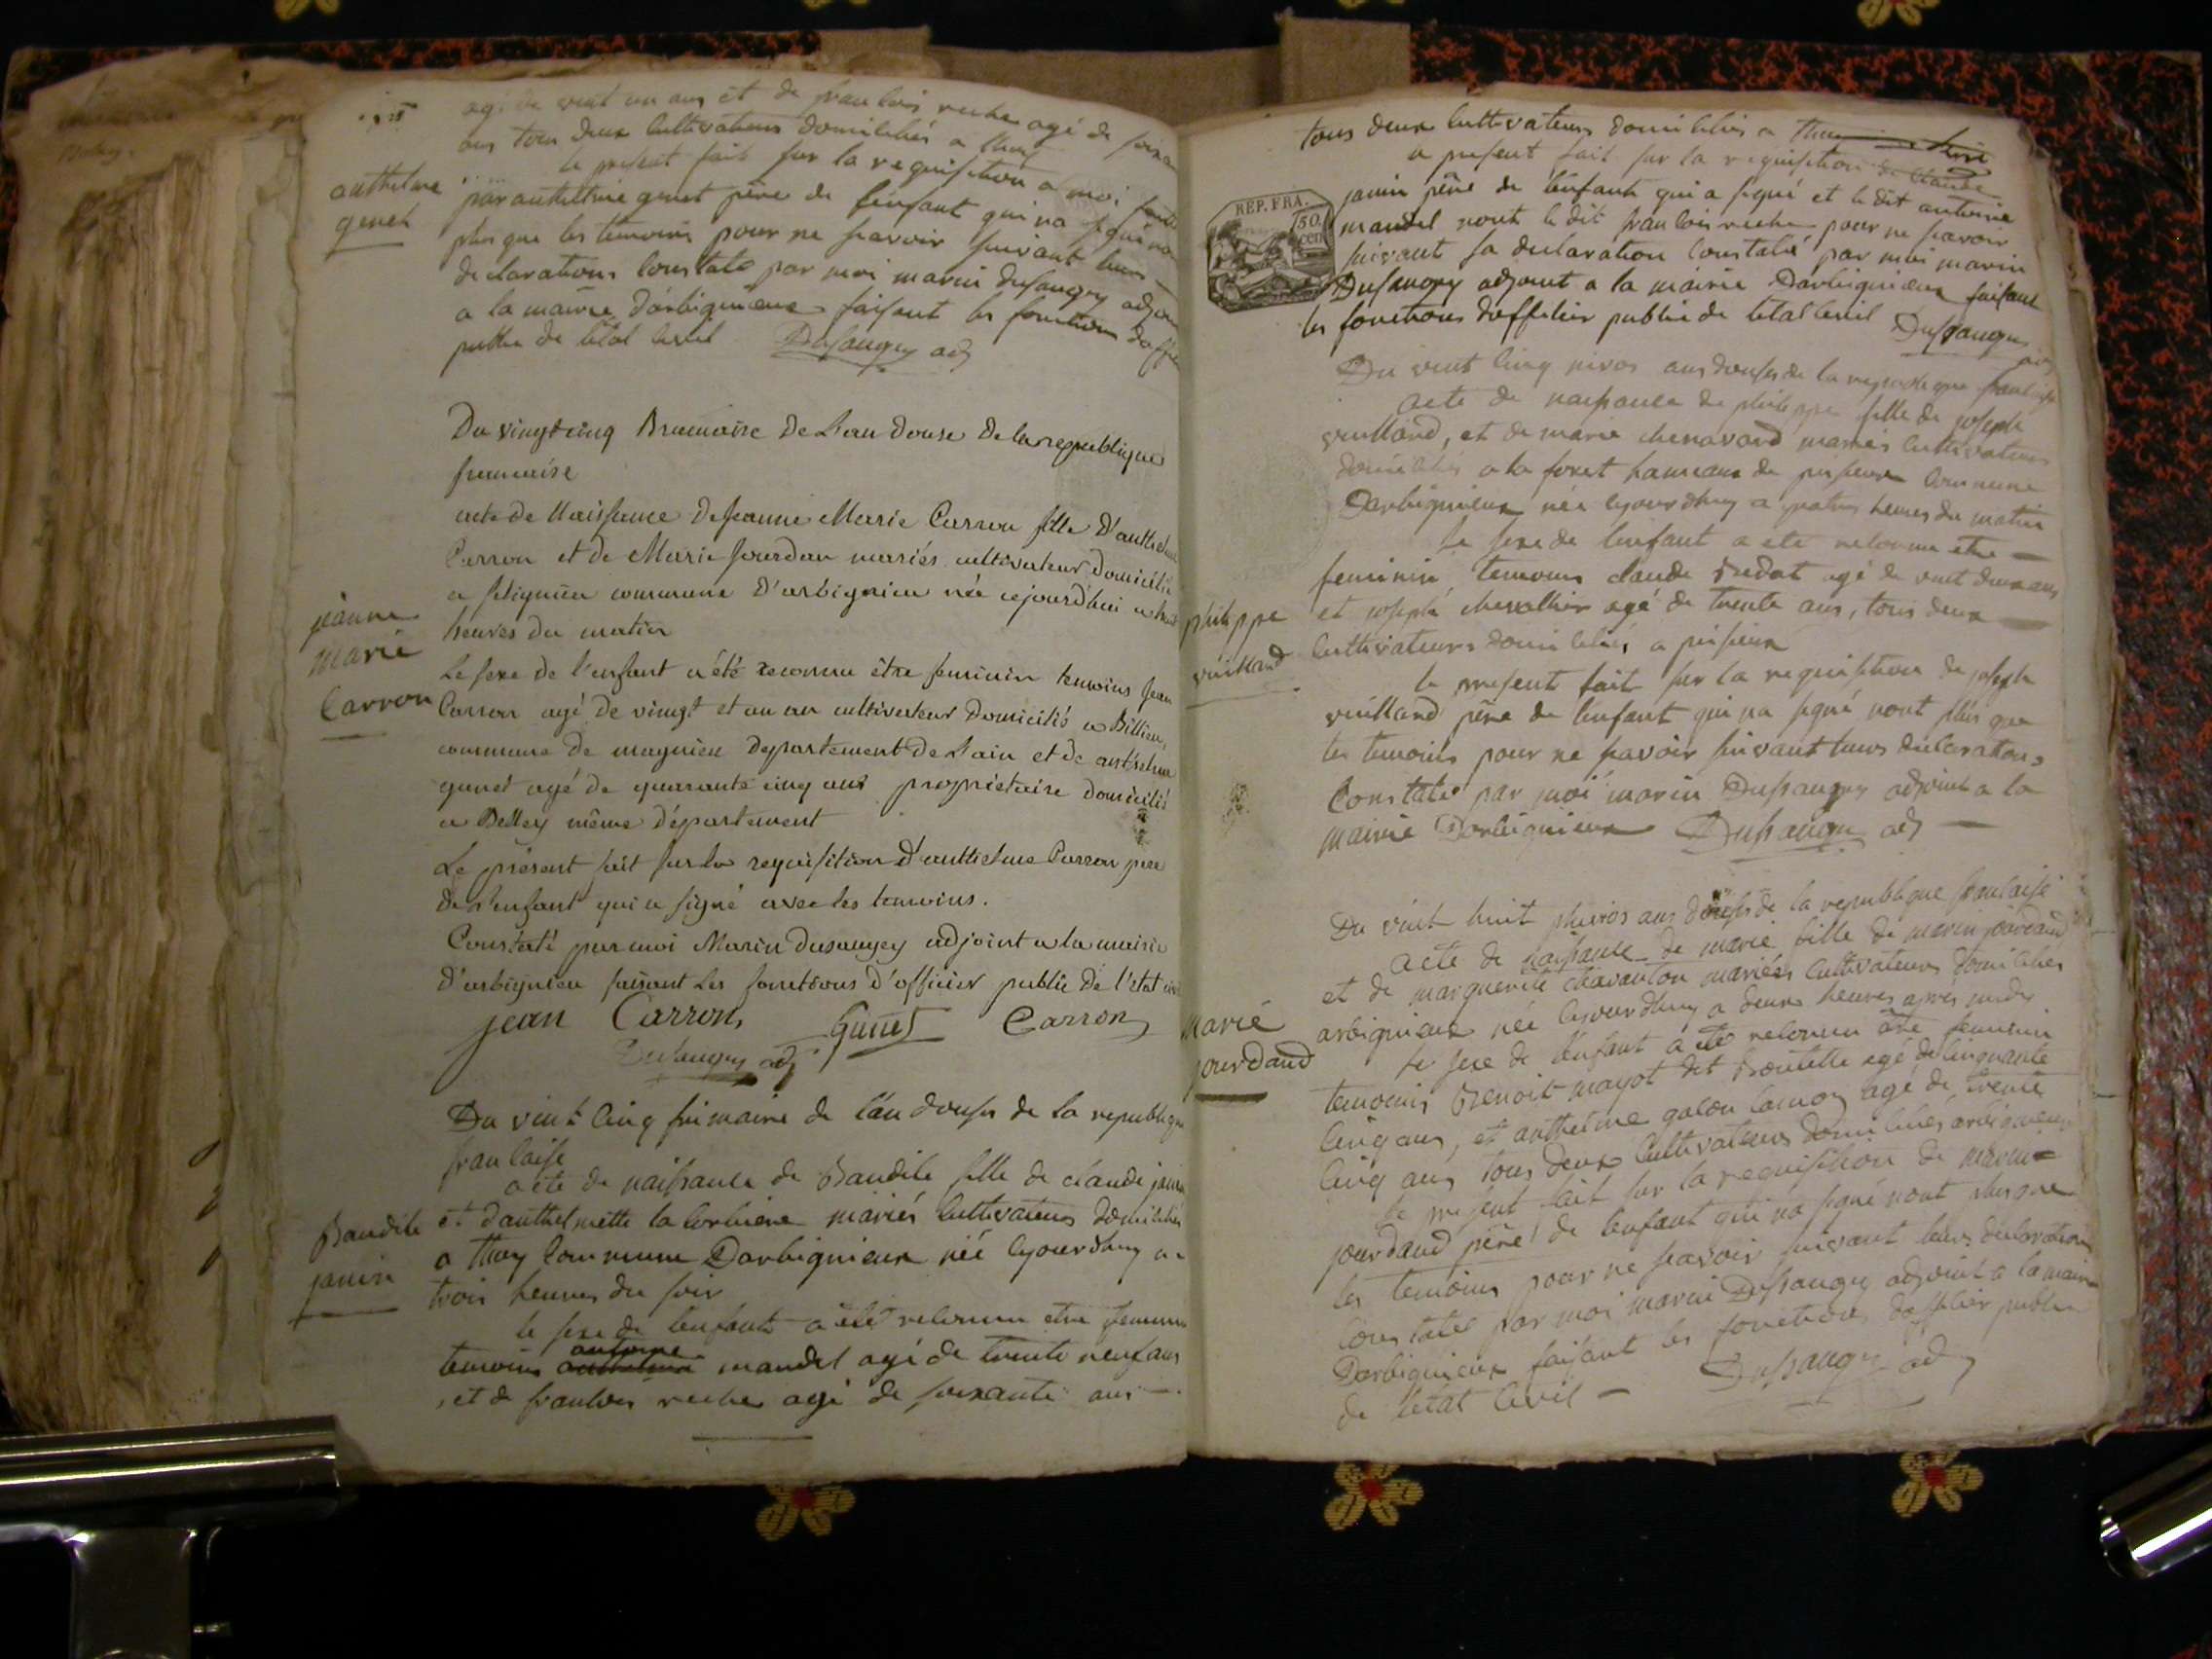 agé de vint un ans et de franlois reche agé de soixan
ans tous deux cultivateurs domiciliés a thoy
le present fait sur la requisition a moi faite
anthelme
genet
par anthelme genet père de l'enfant qui na signé no
plus que les temoins pour ne savoir suivant leurs
declarations constaté par moi marin dusaugey adjoin
a la mairie d'arbignieux faisant les fonctions doffi
public de létat civil Dusaugey adj
Du vingt cinq Brumaire De L'an douse De la republique
francaise
acte de Naissance De Jeanne Marie Carron fille D'anthelme
Carron et de Marie Jourdan mariés cultivateur Domicilié
a seligniéu commune D'arbignieu née cejourd'hui a huit
heures du matin
jeanne
marie
Carron
Le sexe de l'enfant a été reconnu être feminin temoins Jean
Carron agé de vingt et un an cultivateur Domicilié a Billieu
commune de magnieu Departement De L'ain et de anthelme
genet agé de quarante cinq ans propriétaire domicilié
a Belley même département
Le présent fait sur la requisition D'anthelme Carron pere
De L'enfant qui a signé avec les temoins.
Constaté par moi Marin dusaugey adjoint a la mairie
D'arbignieu faisant Les fonctions d'officier public De l'état civ
jean Carron Gunet Carron
Dusaugey adj
Du vint cinq frimaire de l'an douse de la republique
franlaise
acte de naissance de Baudile fille de claude janin
Baudile
janin
et d'anthelmette la corbiere mariés cultivateurs domiciliés
a thoy commune Darbignieux née cejourdhuy a
trois heures du soir
le sexe de lenfant a été reconnu etre feminin
antoine
temoins mandel agé de trente neuf ans
et de franlois reche agé de soixante ans
tous deux cultivateurs domiciliés a thoy
le present fait sur la requisition de claude
REP. FRA.
50.
cen
janin père de l'enfant qui a signé et le dit antoine
mandel nont le dit franlois reche pour ne savoir
suivant sa declaration constaté par moi marin
Dusaugey adjoint a la mairie Darbignieux faisant
les fonctions doffilier public de létat civil Dussaugey
adj
Du vint cinq nivos ans douse de la republique franlaise
acte de naissance de philippe fille de joseph
vuilland, et de marie chenavard mariés cultivateurs
domiciliés a la foret hameau de peysieux commune
Darbignieux née cejourdhuy a quatre heures du matin
le sexe de lenfant a eté reconnu etre
feminin temoins claude budat agé de vint deux ans
et joseph chevallier agé de trente ans, tous deux
philippe
vuilland
cultivateurs domiciliés a peisieux
le present fait sur la requisition de joseph
vuilland père de l'enfant qui na signé nont plus que
les temoins pour ne savoir suivant leurs declarations
Constaté par moi marin Dussaugey adjoint a la
mairie Darbignieux Dussaugey adj
Du vint huit pluvios ans douse de la republique franlaise
acte de naissance de marie fille de marin jourdand
et de marguerite chavanton mariées cultivateurs domiciliés
marie
jourdand
arbignieux née cejourdhuy a deux heures après midy
le sexe de l'enfant a été reconnu être feminin
temoins Benoit mayot dit Boutelle agé de cinquante
cinq ans, et anthelme galon agé de trente
cinq ans tous deux cultivateurs domiciliés arbignieux
le present fait sur la requisition de marin
jourdand père de lenfant qui na signé nont plus que
les temoins pour ne savoir suivant leurs declarations
constaté par moi marin Dussaugey adjoint a la mairie
Darbignieux faisant les fonctions doffilier public
de l'etat Civil Dussaugey adj